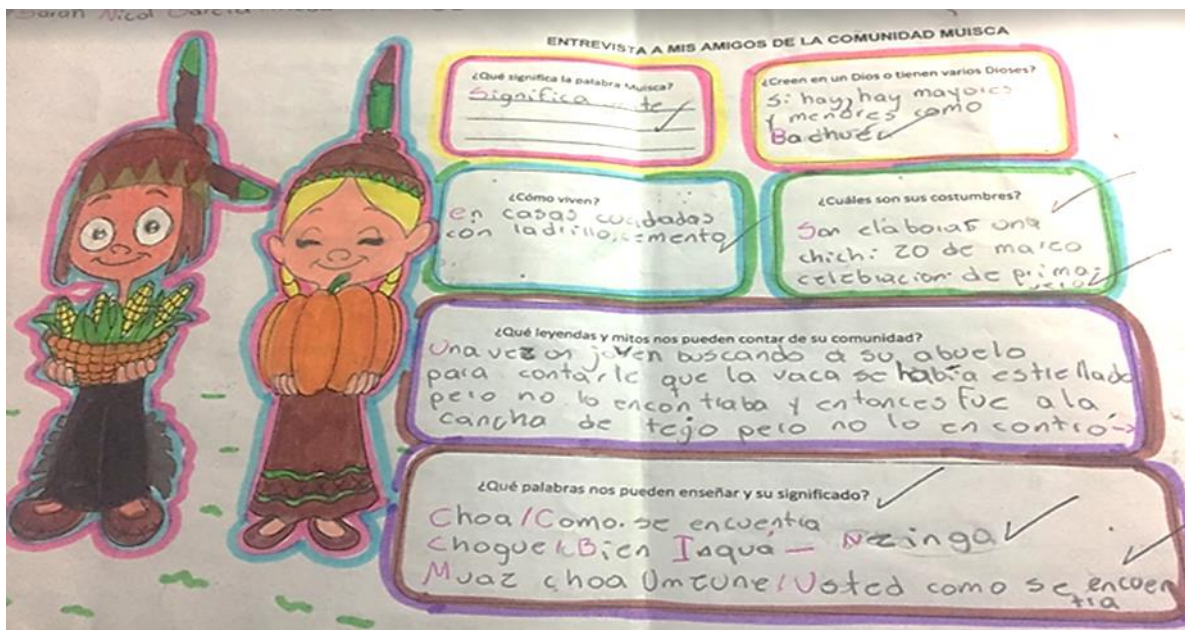 Nicol García
ENTREVISTA A MIS AMIGOS DE LA COMUNIDAD MUISCA
¿Qué significa la palabra Muisca?
Significa
¿Creen en un Dios o tienen varios Dioses?
Si hay, hay mayores
y menores como
Bachué
¿Cómo viven?
en casas
con ladrillo, cemento
¿Cuáles son sus costumbres?
Son elaborar una
chich: 20 de marzo
celebracion de prima
vera
¿Qué leyendas y mitos nos pueden contar de su comunidad?
Una vez un joven buscando a su abuelo
para contarle que la vaca se había estrellado
pero no lo encontraba y entonces fue a la
cancha de tejo pero no lo encontro→
¿Qué palabras nos pueden enseñar y su significado?
Choa/Como. se encuentra
Chogue/Bien Inqua — Nzinga
Muaz choa Umzune/Usted como se encuen
tra